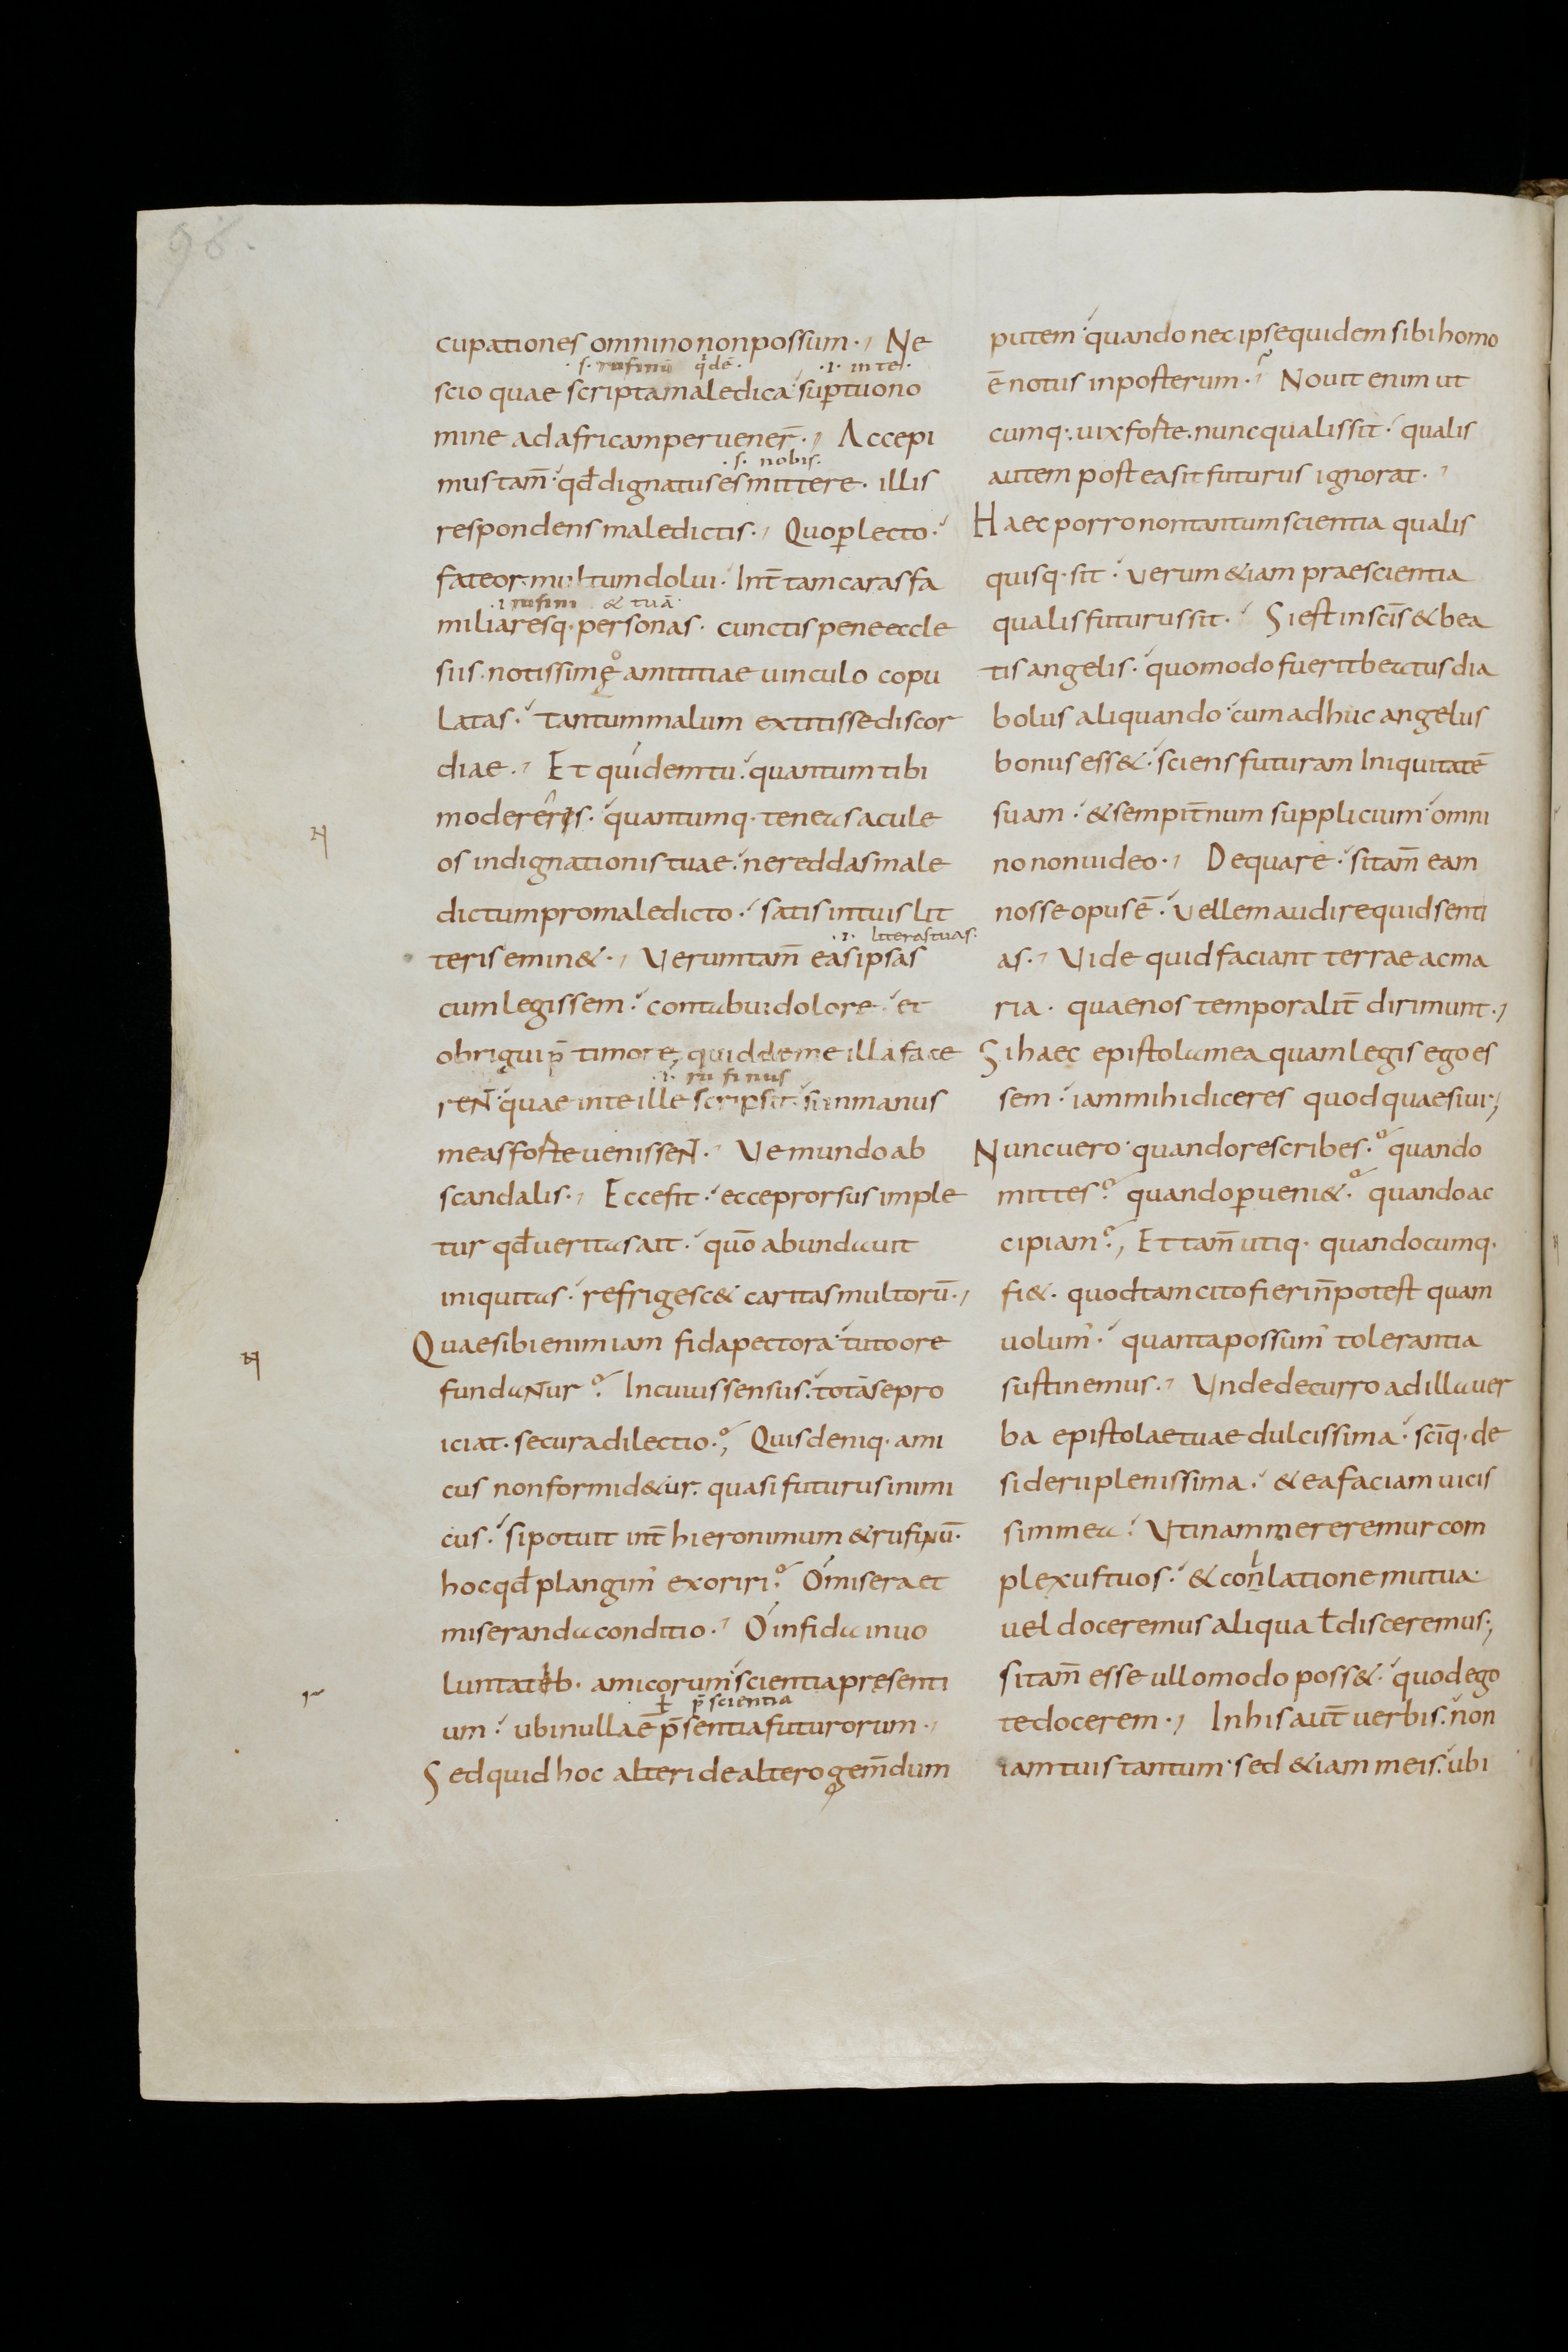 96.
cupationes omnino non possum·, Ne
·s· rufini q̇dē· ·i· in te·
scio quae scripta maledica· sup̱ tuo no
mine ad africam peruener̄·, Accepi
·s· nobis·
mus tam̄· qđ dignatus es mittere· illis
respondens maledictis·, Quo p̱lecto·
fateor· multum dolui· Int̄ tam caras fa
·i· rufini & tuā·
miliaresq· personas· cunctis pene eccle
siis· notissimę amititiae uinculo copu
latas· tantum malum extitisse discor
diae·, Et quidem tu· quantum tibi
modereris· quantumq· teneas acule
os indignationis tuae· ne reddas male
dictum pro maledicto· satis in tuis lit
·i· literas tuas·
teris emin&·, Verumtam̄ eas ipsas
cum legissem· contabui dolore· et
obrigui p̄ timore, quid de me illa face
·i· rufinus
reNt· quae in te ille scripsit· si in manus
meas forte uenisseNt·, Ve mundo ab
scandalis·, Ecce fit· ecce prorsus imple
tur qđ ueritas ait· quō abundauit
iniquitas· refrigesc& caritas multorū·,
Quae sibi enim iam fida pectora· tuto ore
fundaNtur· In cuius sensus· totā se pro
iciat· secura dilectio·, Quis deniq· ami
cus non formid&ur· quasi futurus inimi
cus· si potuit int̄ hieronimum & rufinū·
hoc qđ plangim' exoriri· O misera et
miseranda conditio·, O infida in uo
luntatib· amicorum scientia pręsenti
ƚ p̄scientia
um· ubi nulla ē p̄sentia futurorum·,
Sed quid hoc alteri de altero gem̄dum
putem· quando nec ipse quidem sibi homo
ē notus in posterum·, Nouit enim ut
cumq· uix forte· nunc qualis sit· qualis
autem postea sit futurus ignorat·,
Haec porro non tantum scientia qualis
quisq· sit· verum &iam praescientia
qualis futurus sit· Si est in sc̄is & bea
tis angelis· quomodo fuerit beatus dia
bolus aliquando· cum adhuc angelus
bonus ess&· sciens futuram Iniquitatē
suam· & sempit̄num supplicium· omni
no non uideo·, De qua re· si tam̄ eam
nosse opus ē· Vellem audire quid senti
as·, Vide quid faciant terrae ac ma
ria· quae nos temporalit̄ dirimunt·,
Si haec epistola mea quam legis ego es
sem· iam mihi diceres quod quaesiui;
Nunc uero· quando rescribes· quando
mittes· quando p̱ueni&· quando ac
cipiam·, Et tam̄ utiq· quandocumq·
fi&· quod tam cito fieri n̄ potest quam
uolum'· quanta possum' tolerantia
sustinemus·, Vnde decurro ad illa uer
ba epistolae tuae dulcissima· sc̄iq· de
siderii plenissima· & ea faciam uicis
sim mea· Vtinam mereremur com
plexus tuos· & conlatione mutua·
l
uel doceremus aliqua ƚ disceremus;
si tam̄ esse ullo modo poss&· quod ego
te docerem·, In his aut̄ uerbis· non
iam tuis tantum· sed &iam meis· ubi